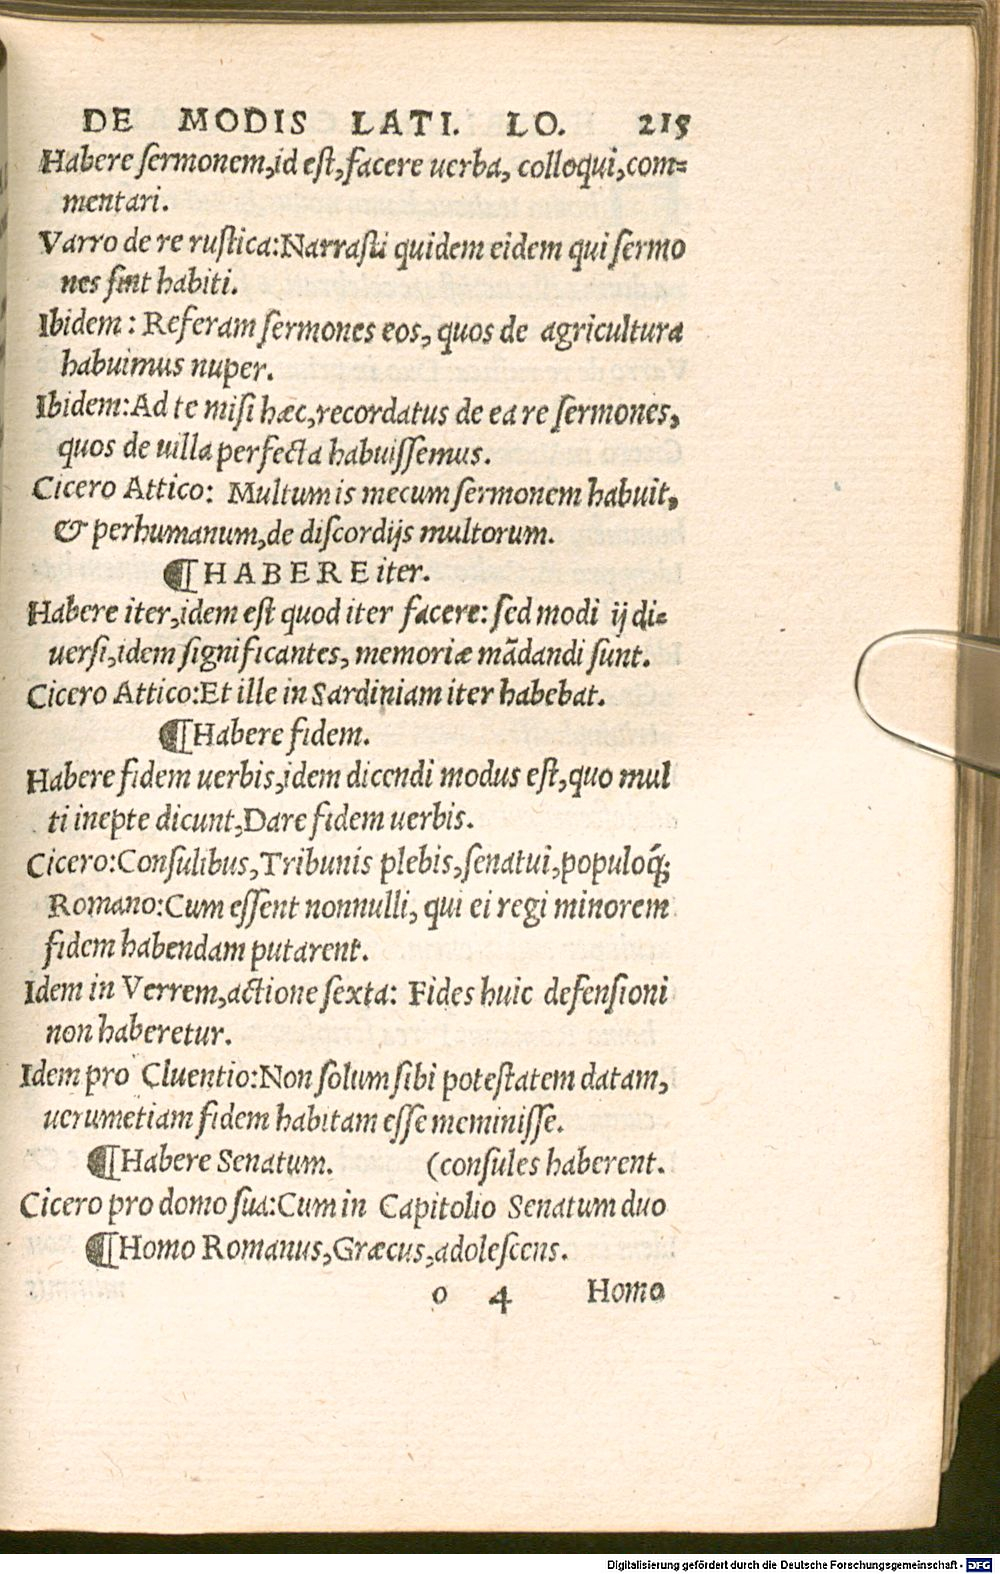 DE MODIS LATI. LO. 215
Habere sermonem,id est,facere uerba, colloqui,com=
mentari.
Varro de re rustica:Narrasti quidem eidem qui sermo
nes sint habiti.
Ibidem: Referam sermones eos, quos de agricultura
habuimus nuper.
Ibidem:Ad te misi hæc,recordatus de ea re sermones,
quos de uilla perfecta habuissemus.
Cicero Attico: Multum is mecum sermonem habuit,
& perhumanum,de discordijs multorum.
¶HABERE iter.
Habere iter,idem est quod iter facere: sed modi ij di=
uersi,idem significantes, memoriæ mãdandi sunt.
Cicero Attico:Et ille in Sardiniam iter habebat.
¶Habere fidem.
Habere fidem uerbis,idem dicendi modus est,quo mul
ti inepte dicunt,Dare fidem uerbis.
Cicero:Consulibus,Tribunis plebis,senatui,populoq̃;
Romano:Cum essent nonnulli, qui ei regi minorem
fidem habendam putarent.
Idem in Verrem,actione sexta: Fides huic defensioni
non haberetur.
Idem pro Cluentio:Non solum sibi potestatem datam,
uerumetiam fidem habitam esse meminisse.
¶Habere Senatum. (consules haberent.
Cicero pro domo sua:Cum in Capitolio Senatum duo
¶Homo Romanus,Græcus,adolescens.
o 4 Homo
Digitalisierung gefördert durch die Deutsche Forschungsgemeinschaft - DFG